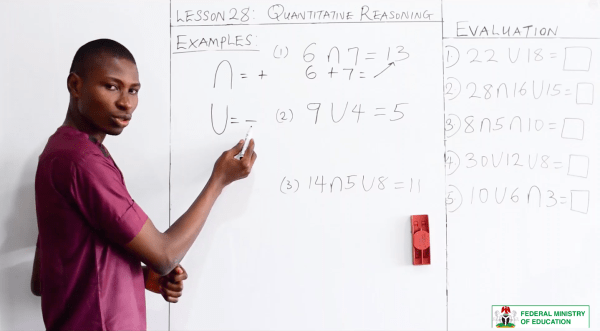 LESSON 28: QUANTITATIVE REASONING
EXAMPLES:
∩ = +
U = -
(1) 6 ∩ 7 = 13
6 + 7 =
(2) 9 U 4 = 5
(3) 14 ∩ 5 U 8 = 11
EVALUATION
1) 22 U 18 =
2) 28 ∩ 16 U 15 =
3) 8 ∩ 5 ∩ 10 =
4) 30 U 12 U 8 =
5) 10 U 6 ∩ 3 =
FEDERAL MINISTRY
OF EDUCATION